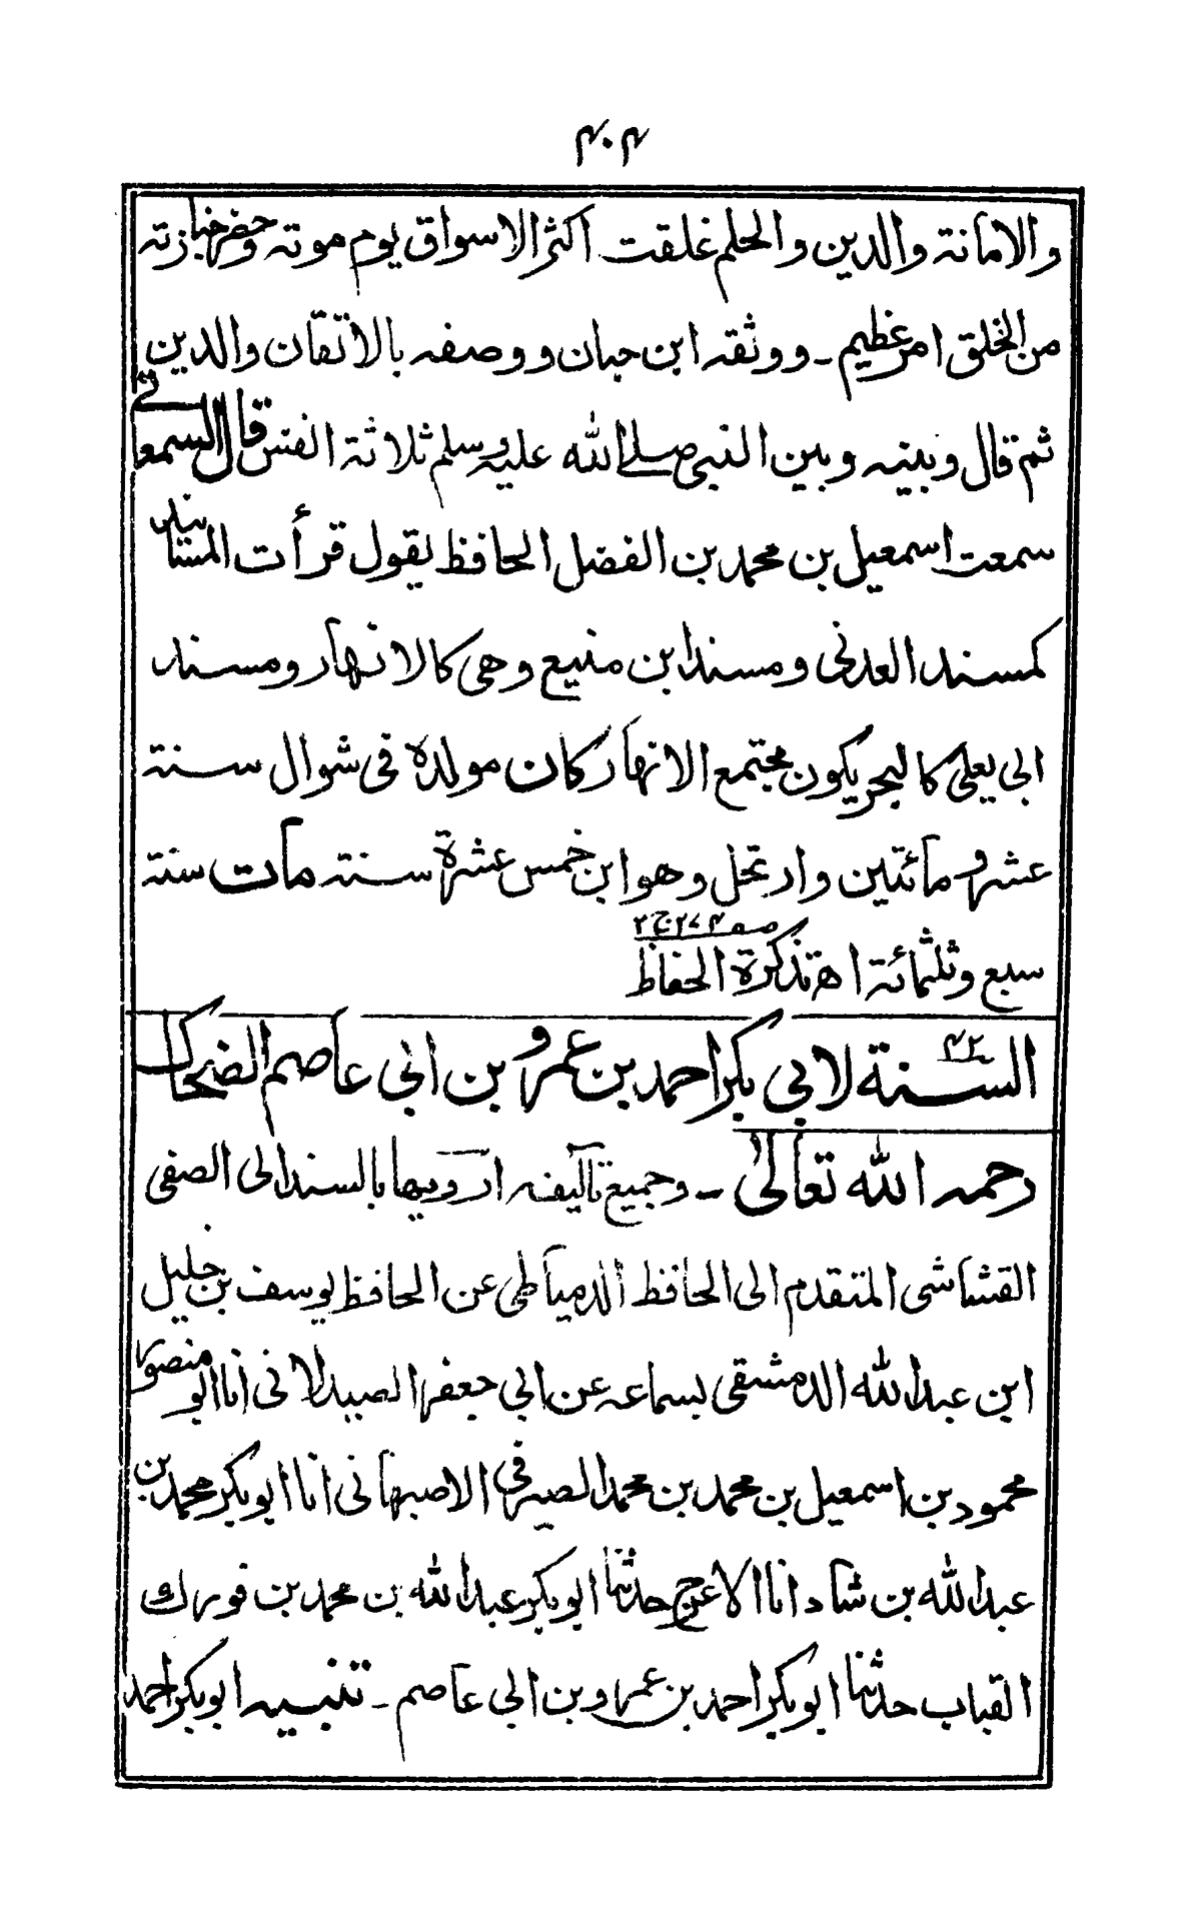 ۴۰۴
والامانة والدين والحلم غلقت أكثر الاسواق يوم موته وحضر جنازته
من الخلق امر عظيم ـ ووثقه ابن حبان ووصفه بالاتقان والدين
ثم قال وبينه وبين النبى صلے الله عليه وسلم ثلاثة انفس قال السمعانے
سمعت اسمعيل بن محمد بن الفضل الحافظ يقول قرأت المسانيد
كمسند العدنى ومسند ابن منيع وهى كالانهار ومسند
ابى يعلى كالبحر يكون مجتمع الانهار كان مولده فى شوال سنة
عشر ومائتين وارتحل وهو ابن خمس عشرة سنة مات سنة
سبع وثلثمائة اهـ تذكرة الحفاظ صـ ۲۷۴ ج ۲
۴۲ السنة لابي بكر احمد بن عمرو بن ابي عاصم الضحاك
رحمه الله تعالى ـ وجميع تآليفه ارويها بالسند الى الصفى
القشاشى المتقدم الى الحافظ الدمياطى عن الحافظ يوسف بن خليل
ابن عبد الله الدمشقى بسماعه عن ابي جعفر الصيدلانى انا ابو منصور
محمود بن اسمعيل بن محمد بن محمد الصيرفى الاصبهانى انا ابو بكر محمد بن
عبد الله بن شاد انا الاعرج حدثنا ابو بكر عبد الله بن محمد بن فورك
القباب حدثنا ابو بكر احمد بن عمرو بن ابي عاصم ـ تنبيه ابو بكر احمد